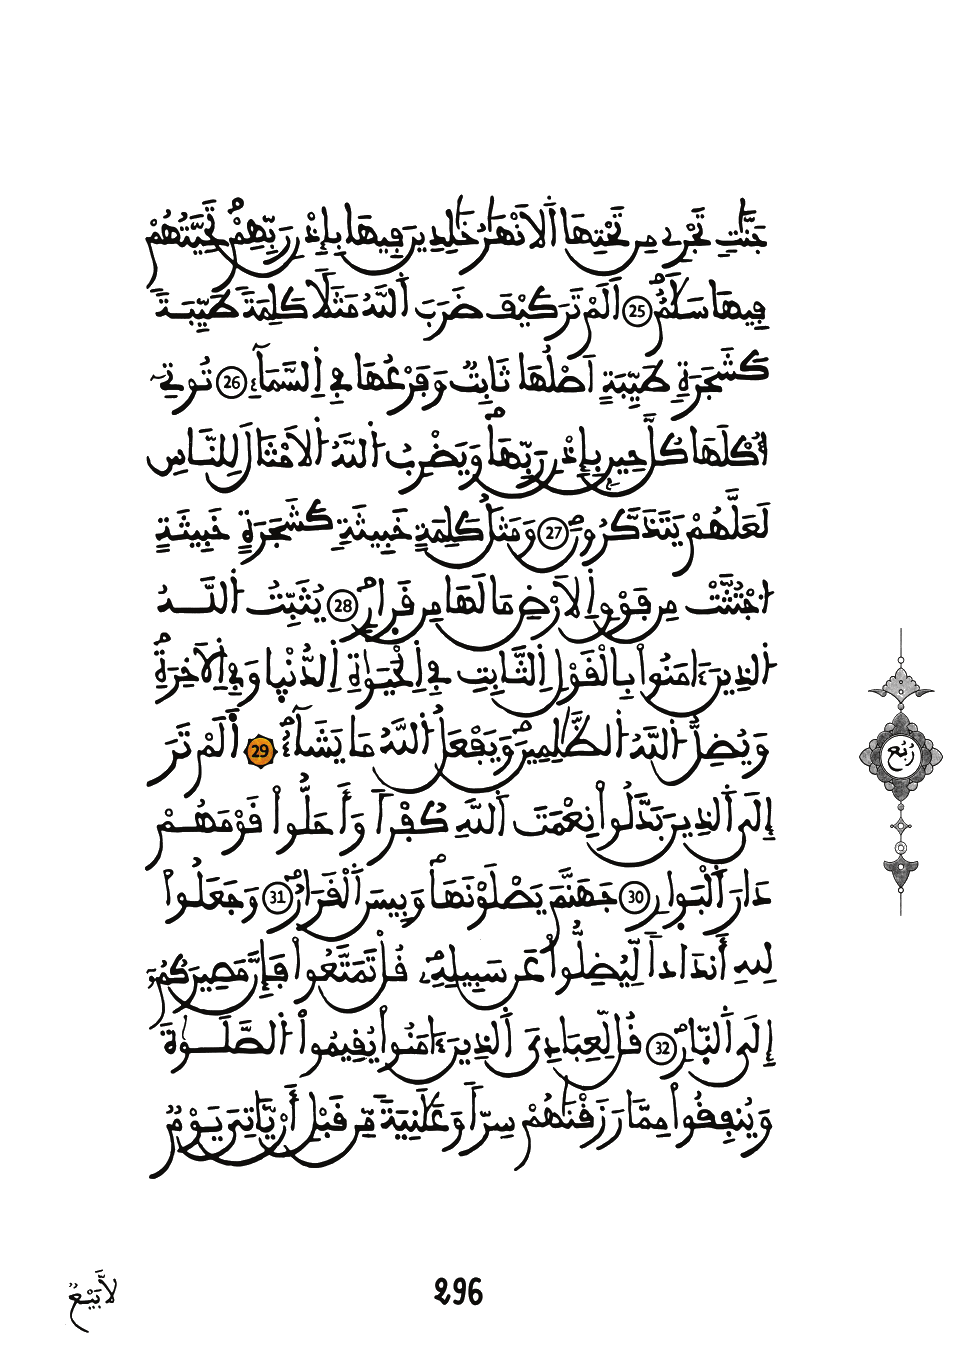 جَنَّٰتٖ تَجْرِے مِن تَحْتِهَا اَ۬لَانْهَٰرُ خَٰلِدِينَ فِيهَا بِإِذْنِ رَبِّهِمْۖ تَحِيَّتُهُمْ
فِيهَا سَلَٰمٌۖ 25 اَلَمْ تَرَ كَيْفَ ضَرَبَ اَ۬للَّهُ مَثَلاٗ كَلِمَةٗ طَيِّبَةٗ
كَشَجَرَةٖ طَيِّبَةٍ اَصْلُهَا ثَابِتٞ وَفَرْعُهَا فِے اِ۬لسَّمَآءِ 26 تُوتِےٓ
أُكْلَهَا كُلَّ حِينِۢ بِإِذْنِ رَبِّهَاۖ وَيَضْرِبُ اُ۬للَّهُ اُ۬لَامْثَالَ لِلنَّاسِ
لَعَلَّهُمْ يَتَذَكَّرُونَۖ 27 وَمَثَلُ كَلِمَةٍ خَبِيثَةٖ كَشَجَرَةٍ خَبِيثَةٍ
اُ۟جْتُثَّتْ مِن فَوْقِ اِ۬لَارْضِ مَا لَهَا مِن قَرارٖۖ 28 يُثَبِّتُ اُ۬للَّهُ
اُ۬لذِينَ ءَامَنُواْ بِالْقَوْلِ اِ۬لثَّابِتِ فِے اِ۬لْحَيَوٰةِ اِ۬لدُّنْي۪ا وَفِے اِ۬لَاخِرَةِۖ
وَيُضِلُّ اُ۬للَّهُ اُ۬لظَّٰلِمِينَۖ وَيَفْعَلُ اُ۬للَّهُ مَا يَشَآءُۖ 29 أَلَمْ تَرَ
إِلَي اَ۬لذِينَ بَدَّلُواْ نِعْمَتَ اَ۬للَّهِ كُفْراٗ وَأَحَلُّواْ قَوْمَهُمْ
دَارَ اَ۬لْبَو۪ارِ 30 جَهَنَّمَ يَصْلَوْنَهَاۖ وَبِيسَ اَ۬لْقَرَارُۖ 31 وَجَعَلُواْ
لِلهِ أَندَاداٗ لِّيُضِلُّواْ عَن سَبِيلِهِۦۖ قُلْ تَمَتَّعُواْ فَإِنَّ مَصِيرَكُمُۥٓ
إِلَي اَ۬لنّ۪ارِۖ 32 قُل لِّعِبَادِيَ اَ۬لذِينَ ءَامَنُواْ يُقِيمُواْ اُ۬لصَّلَوٰةَ
وَيُنفِقُواْ مِمَّا رَزَقْنَٰهُمْ سِرّاٗ وَعَلَٰنِيَةٗ مِّن قَبْلِ أَنْ يَّاتِيَ يَوْمٞ
رُبُع
لَّا بَيْعٞ
296